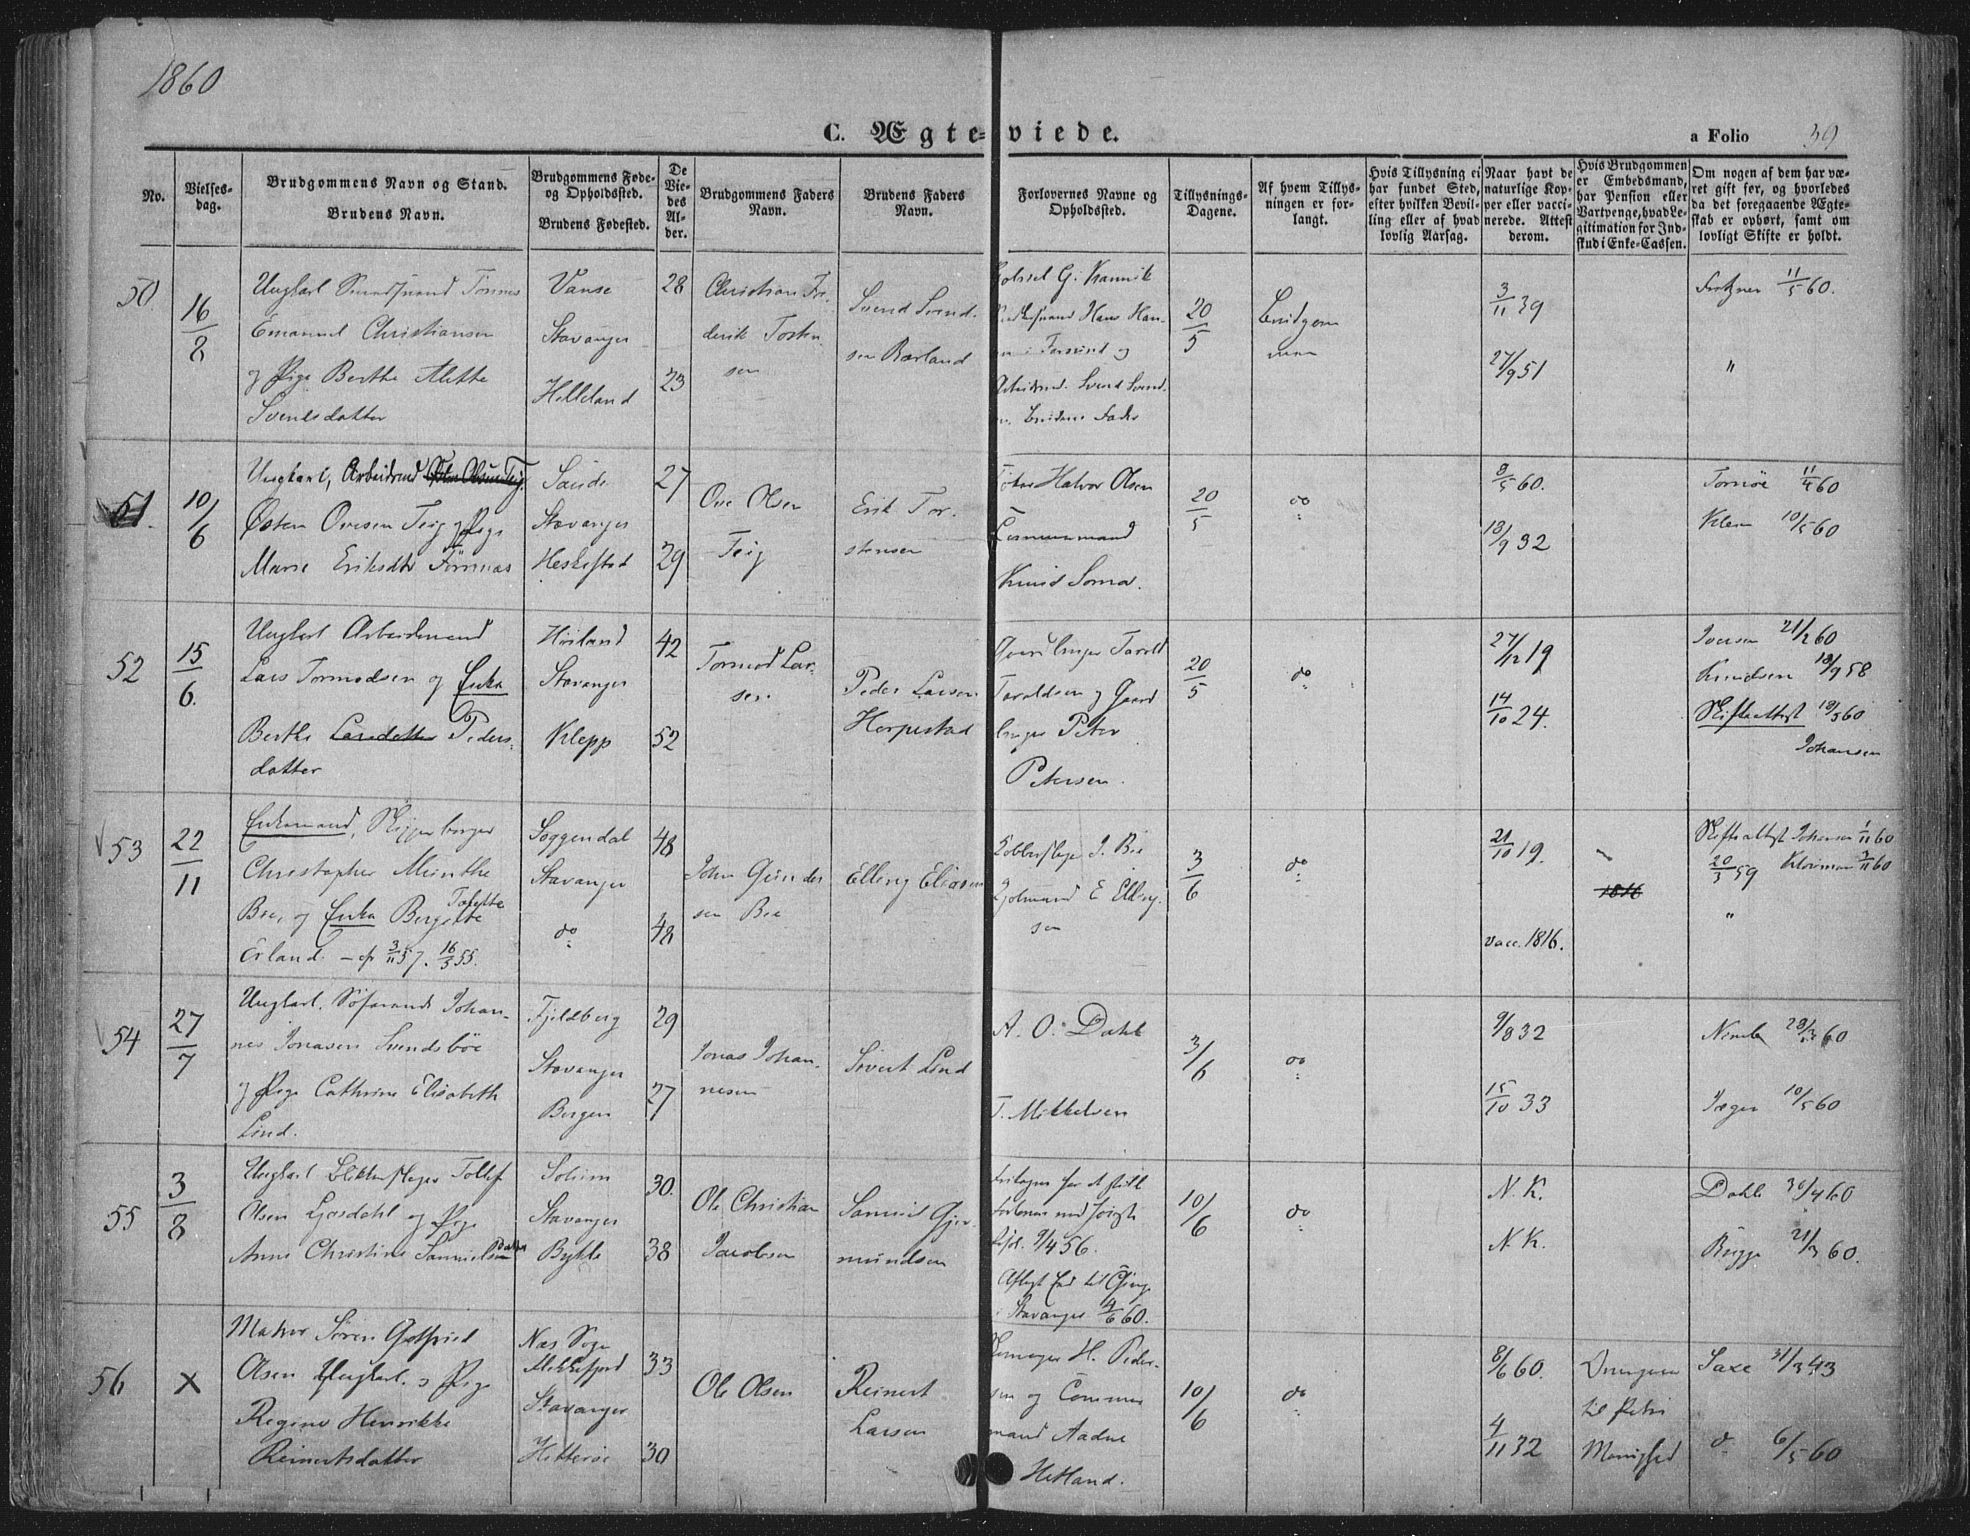 1860
C. Ægte-viede.
a Folio 39
No.
Vielses-
dag.
Brudgommens Navn og Stand.
Brudens Navn.
Brudgommens Føde-
og Opholdsted.
Brudens Fødested.
De
Vie-
des
Al-
der.
Brudgommens Faders
Navn.
Brudens Faders
Navn.
Forlovernes Navne og
Opholdsted.
Tillysnings-
Dagene.
Af hvem Tillys-
ningen er for-
langt.
Hvis Tillysning ei
har fundet Sted,
efter hvilken Bevil-
ling eller af hvad
lovlig Aarsag.
Naar havt de
naturlige Kop-
per eller vacci-
nerede. Attest
derom.
Hvis Brudgommen
er Embedsmand,
har Pension eller
Vartpenge, hvad Le-
gitimation for Ind-
skud i Enke-Cassen.
Om nogen af dem har væ-
ret gift før, og hvorledes
da det foregaaende Ægte-
skab er ophørt, samt om
lovligt Skifte er holdt.
50
16/8
Ungkarl
Emanuel Christiansen
og Pige Berthe Alette
Svendsdatter
Vanse
Stavanger
Helleland
28
23
Christian Fre-
derik
sen
Svend Svend-
sen Bærland
Gabriel G. Kannik
Hans Han-
sen i og
Svend Svend-
sen Brudens Fader
20/5
Brudgom-
men
3/11 39
27/9 51
Fritzner 11/5 60.
"
51.
10/6
Ungkarl, Arbeidsmd
Østen Ovesen Teig og Pige
Marie Eriksdtr Førrnæs
Sande
Stavanger
Heskestad
27
29
Ove Olsen
Teig
Erik Tor-
stensen
Halvor Olsen
Knud Soma.
20/5
do
8/5 60.
18/9 32
Tornøe 11/4 60
10/5 60
52
15/6.
Ungkarl Arbeidsmand
Lars Tormodsen og Enke
Berthe Larsdatter Peders-
datter
Høiland
Stavanger
Klepp
42
52
Tormod Lar-
sen
Peder Larsen
Horpestad
Tarald
Taraldsen og Gaard-
bruger Peter
Petersen.
20/5
do
27/12 19
14/10 24.
Iversen 21/2 60
Knudsen 18/9 58
Skifteattest 18/5 60
Johansen
53
22/11
Enkemand, Skipperborger
Christopher Munthe
Bie, og Enke Bergitte Tolette
Erland. 3/11 57. 16/3 55.
Soggendal
Stavanger
do
48
48
John Gunder-
sen Bie
Elling Eliasen
Kobberslager J. Bie
E Elling-
sen
3/6
do
21/10 19.
vacc. 1816.
1816
Skifteattest Johansen 1/11 60
20/3 59 3/11 60
"
54
27/7
Ungkarl. Søfarende Johan-
nes Jonasen Svendsbøe
og Pige Cathrine Elisabeth
Lind.
Fjeldberg
Stavanger
Bergen
29
27
Jonas Johan-
nesen
Sivert Lind
A. O. Dahl
T. Mikkelsen
3/6
do
9/8 32
15/10 33
60
Jæger 10/5 60
55
3/8
Ungkarl Blikkenslager Tollef
Olsen Ljosdahl og Pige
Anne Christine Samuelsdatter
Solum
Stavanger
Bykle
30.
38
Ole Christian
Jacobsen
Samuel Gjer-
mundsen
Fritagen for at stille
Forlovere
9/4 56.
Aflagt Eed til
i Stavanger 4/6 60.
10/6
do
N. K.
N. K.
Dahl 30/4 60
Bugge 21/3 60.
56
X
Matros Søren Gotfried
Olsen Ungkarl. & Pige
Regine Henrikke
Reinertsdatter
Næs Sogn
Flekkefjord
Stavanger
Hitterøe
33
30
Ole Olsen
Reinert
Larsen
H. Peder-
sen og Commer-
mand Aadne
Hetland.
10/6
do
8/6 60.
4/11 32
til Petri
Menighed
Saxe 31/3 43
do 6/5 60